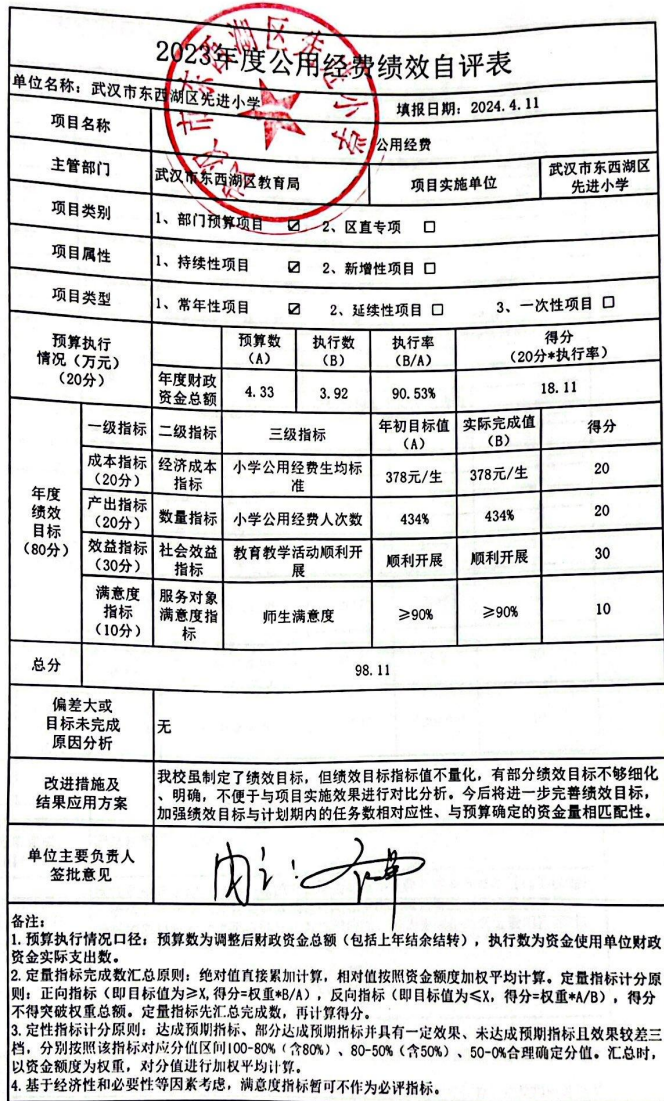 2023年度公用经费绩效自评表
单位名称：武汉市东西湖区先进小学 填报日期：2024.4.11
项目名称 公用经费
主管部门 武汉市东西湖区教育局 项目实施单位 武汉市东西湖区
先进小学
项目类别 1、部门预算项目 ☑ 2、区直专项 □
项目属性 1、持续性项目 ☑ 2、新增性项目 □
项目类型 1、常年性项目 ☑ 2、延续性项目 □ 3、一次性项目 □
预算执行
情况（万元）
（20分）
预算数
（A）
执行数
（B）
执行率
（B/A）
得分
（20分*执行率）
年度财政
资金总额
4.33 3.92 90.53% 18.11
年度
绩效
目标
（80分）
一级指标 二级指标 三级指标 年初目标值
（A）
实际完成值
（B）
得分
成本指标
（20分）
经济成本
指标
小学公用经费生均标
准
378元/生 378元/生 20
产出指标
（20分）
数量指标 小学公用经费人次数 434% 434% 20
效益指标
（30分）
社会效益
指标
教育教学活动顺利开
展
顺利开展 顺利开展 30
满意度
指标
（10分）
服务对象
满意度指
标
师生满意度 ≥90% ≥90% 10
总分 98.11
偏差大或
目标未完成
原因分析
无
改进措施及
结果应用方案
我校虽制定了绩效目标，但绩效目标指标值不量化，有部分绩效目标不够细化
、明确，不便于与项目实施效果进行对比分析。今后将进一步完善绩效目标，
加强绩效目标与计划期内的任务数相对应性、与预算确定的资金量相匹配性。
单位主要负责人
签批意见
备注：
1.预算执行情况口径：预算数为调整后财政资金总额（包括上年结余结转），执行数为资金使用单位财政
资金实际支出数。
2.定量指标完成数汇总原则：绝对值直接累加计算，相对值按照资金额度加权平均计算。定量指标计分原
则：正向指标（即目标值为≥X,得分=权重*B/A），反向指标（即目标值为≤X，得分=权重*A/B），得分
不得突破权重总额。定量指标先汇总完成数，再计算得分。
3.定性指标计分原则：达成预期指标、部分达成预期指标并具有一定效果、未达成预期指标且效果较差三
档，分别按照该指标对应分值区间100-80%（含80%）、80-50%（含50%）、50-0%合理确定分值。汇总时，
以资金额度为权重，对分值进行加权平均计算。
4.基于经济性和必要性等因素考虑，满意度指标暂可不作为必评指标。